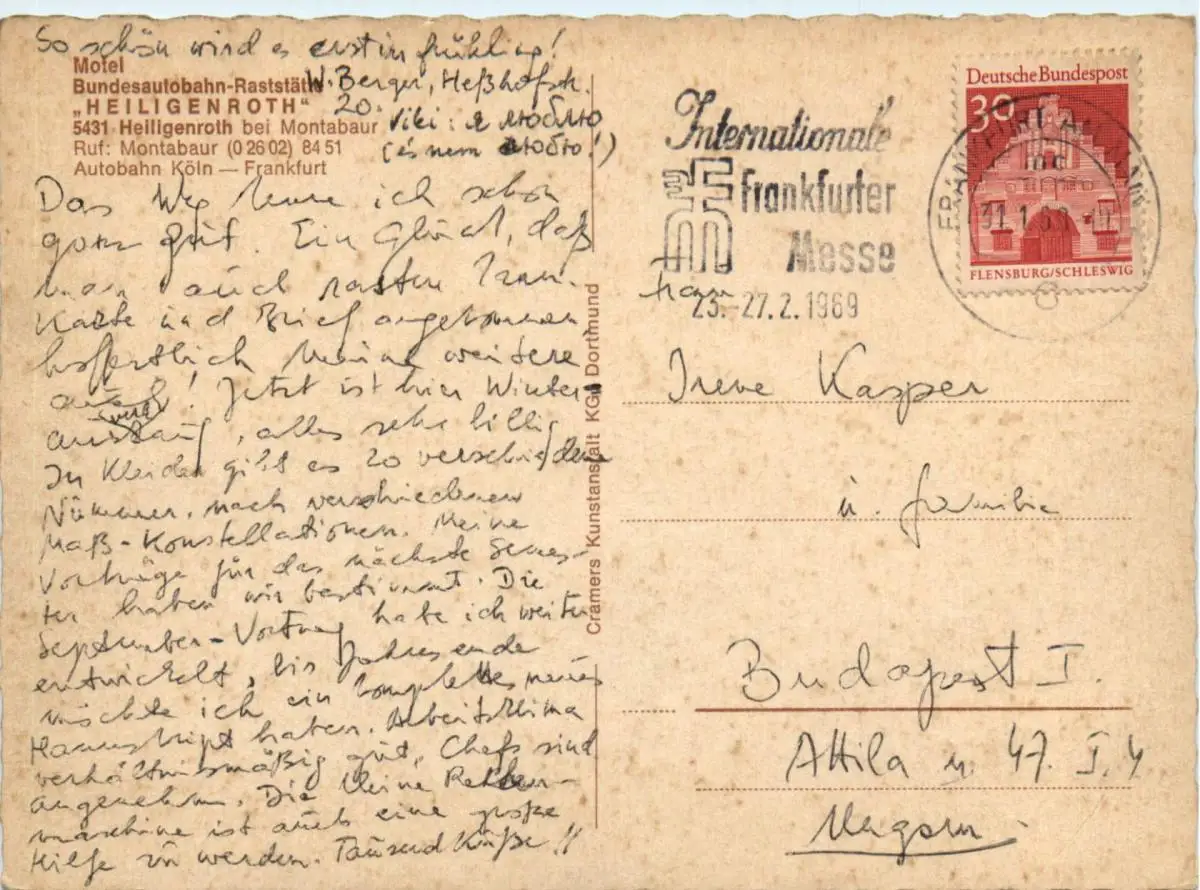 So schön wird es erst im frühling!
Motel
Bundesautobahn-Raststätte
"HEILIGENROTH"
5431 Heiligenroth bei Montabaur
Ruf: Montabaur (0 26 02) 84 51
Autobahn Köln — Frankfurt
W. Berger, Heßhofstr.
20.
Viki: я люблю
(és nem люблю!)
Das Weg kenne ich schon
ganz gut. Ein Glück, daß
man auch rasten kann.
Karte und Brief angekommen
hoffentlich meine weitere
auch! Jetzt ist hier Winter-
, alles sehr billig
In Kleider gibt es 20 verschiedene
Nümmer, nach verschiedenen
Maß-Konstellationen. Meine
Vorträge für das nächste Semes-
ter haben wir bestimmt. Die
September-Vortrag habe ich weiter
entwickelt, bis Jahresende
möchte ich ein komplettes neues
Manuskript haben. Arbeitsklima
verhältnismäßig gut, Chefs sind
angenehm. Die kleine Rechen-
maschine ist auch eine große
Hilfe zu werden. Tausend Küße!!
Cramers Kunstanstalt KG Dortmund
Internationale
Frankfurter
Messe
23.-27.2.1969
Deutsche Bundespost
30
FLENSBURG/SCHLESWIG
FRANKFURT AM MAIN
31.1.69
Frau
Irene Kasper
u. Familie
Budapest I.
Attila u 47. I.4
Ungarn